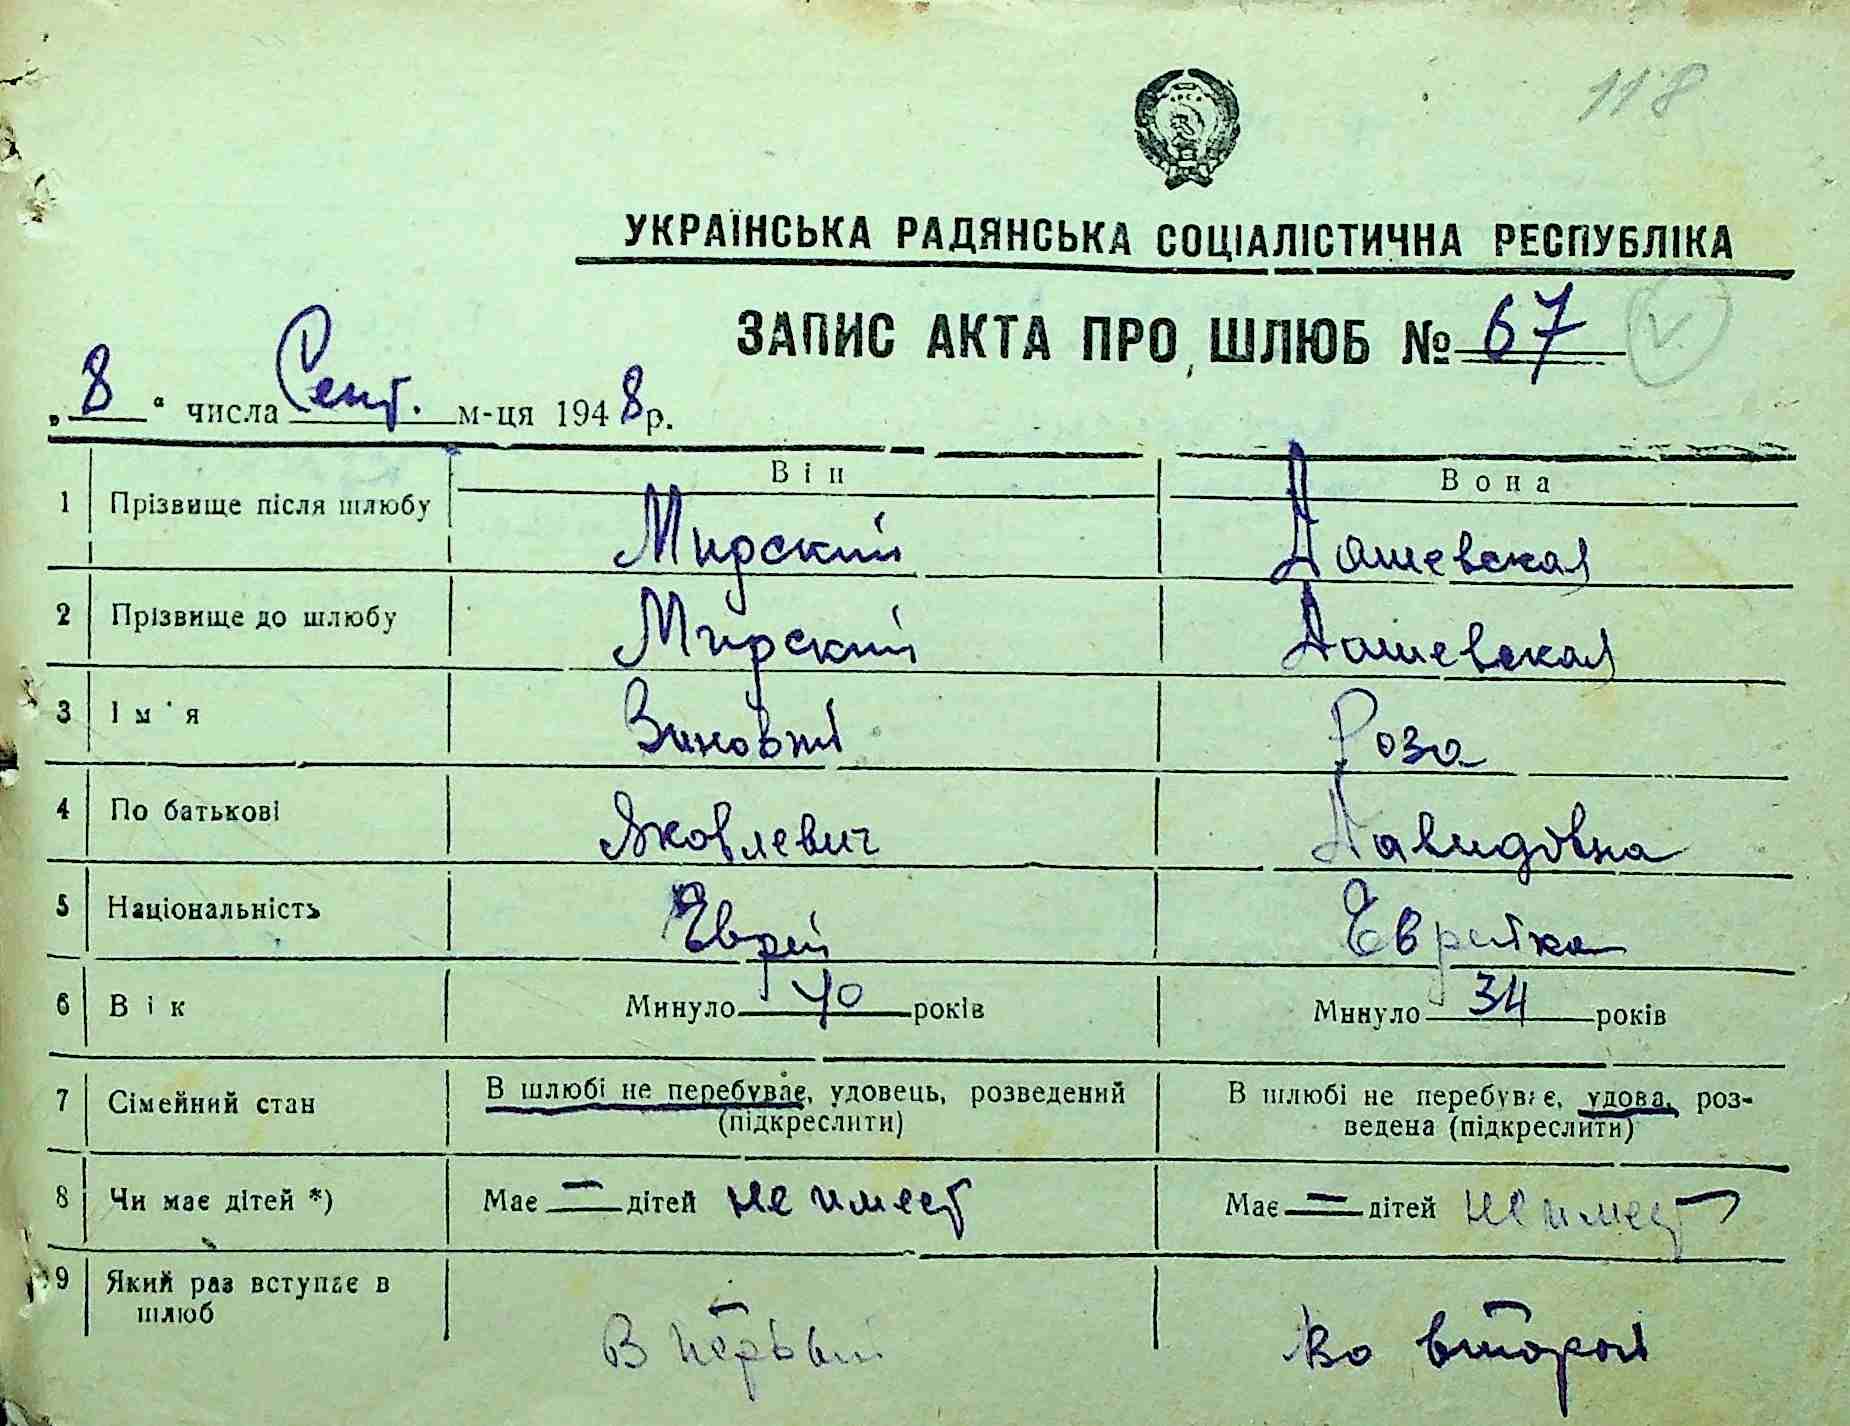 118
УКРАЇНСЬКА РАДЯНСЬКА СОЦІАЛІСТИЧНА РЕСПУБЛІКА
ЗАПИС АКТА ПРО ШЛЮБ № 67
„8“ числа Сент. м-ця 1948 р.
Він Вона
1 Прізвище після шлюбу Мирский Дашевская
2 Прізвище до шлюбу Мирский Дашевская
3 Ім'я Зиновий Роза
4 По батькові Яковлевич Давидовна
5 Національність Еврей Еврейка
6 Вік Минуло 40 років Минуло 34 років
7 Сімейний стан В шлюбі не перебуває, удовець, розведений (підкреслити) В шлюбі не перебуває, удова, роз-
ведена (підкреслити)
8 Чи має дітей *) Має = дітей не имеет Має = дітей не имеет
9 Який раз вступає в
шлюб В первый Во второй